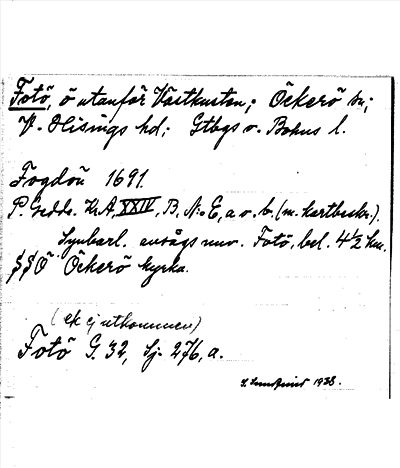 Fotö, ö utanför Västkusten; Öckerö sn;
V. Hisings hd; Gtbgs o. Bohus l.
Fogdöü 1691.
P. Gedda. Kr.A. XXIV, B. N:o E, a o. b. (m. kartbeskr.).
Synbarl. avsågs nuv. Fotö, bel. 4½ km.
§§Ö Öckerö kyrka.
(ek ej utkommen)
Fotö G. 32, Sj. 276, a.
1938.